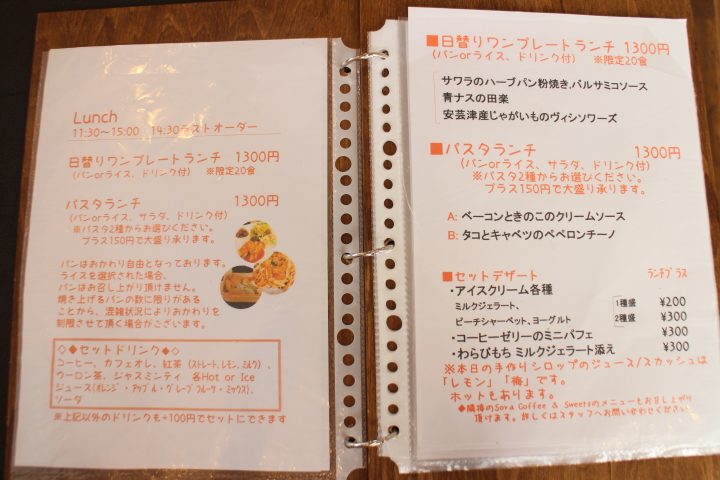 Lunch
11:30～15:00　14:30ラストオーダー
日替りワンプレートランチ　1300円
(パンorライス、ドリンク付)　※限定20食
パスタランチ　1300円
(パンorライス、サラダ、ドリンク付)
※パスタ2種からお選びください。
プラス150円で大盛り承ります。
パンはおかわり自由となっております。
ライスを選択された場合、
パンはお召し上がり頂けません。
焼き上げるパンの数に限りがある
ことから、混雑状況によりおかわりを
制限させて頂く場合がございます。
◇◆セットドリンク◆◇
コーヒー、カフェオレ、紅茶（ストレート、レモン、ミルク）、
ウーロン茶、ジャスミンティ　各Hot or Ice
ジュース(オレンジ・アップル・グレープフルーツ・ミックス)、
ソーダ
※上記以外のドリンクも+100円でセットにできます
■日替りワンプレートランチ 1300円
(パンorライス、ドリンク付)　※限定20食
サワラのハーブパン粉焼き,バルサミコソース
青ナスの田楽
安芸津産じゃがいものヴィシソワーズ
■パスタランチ　1300円
(パンorライス、サラダ、ドリンク付)
※パスタ2種からお選びください。
プラス150円で大盛り承ります。
A: ベーコンときのこのクリームソース
B: タコとキャベツのペペロンチーノ
■セットデザート　ランチプラス
・アイスクリーム各種
ミルクジェラート、　1種盛　¥200
ピーチシャーベット、ヨーグルト　2種盛　¥300
・コーヒーゼリーのミニパフェ　¥300
・わらびもち ミルクジェラート添え　¥300
※本日の手作りシロップのジュース/スカッシュは
「レモン」「梅」です。
ホットもあります。
◆隣接のSova Coffee & Sweetsのメニューもお召し上がり
頂けます。詳しくはスタッフへお問い合わせください。